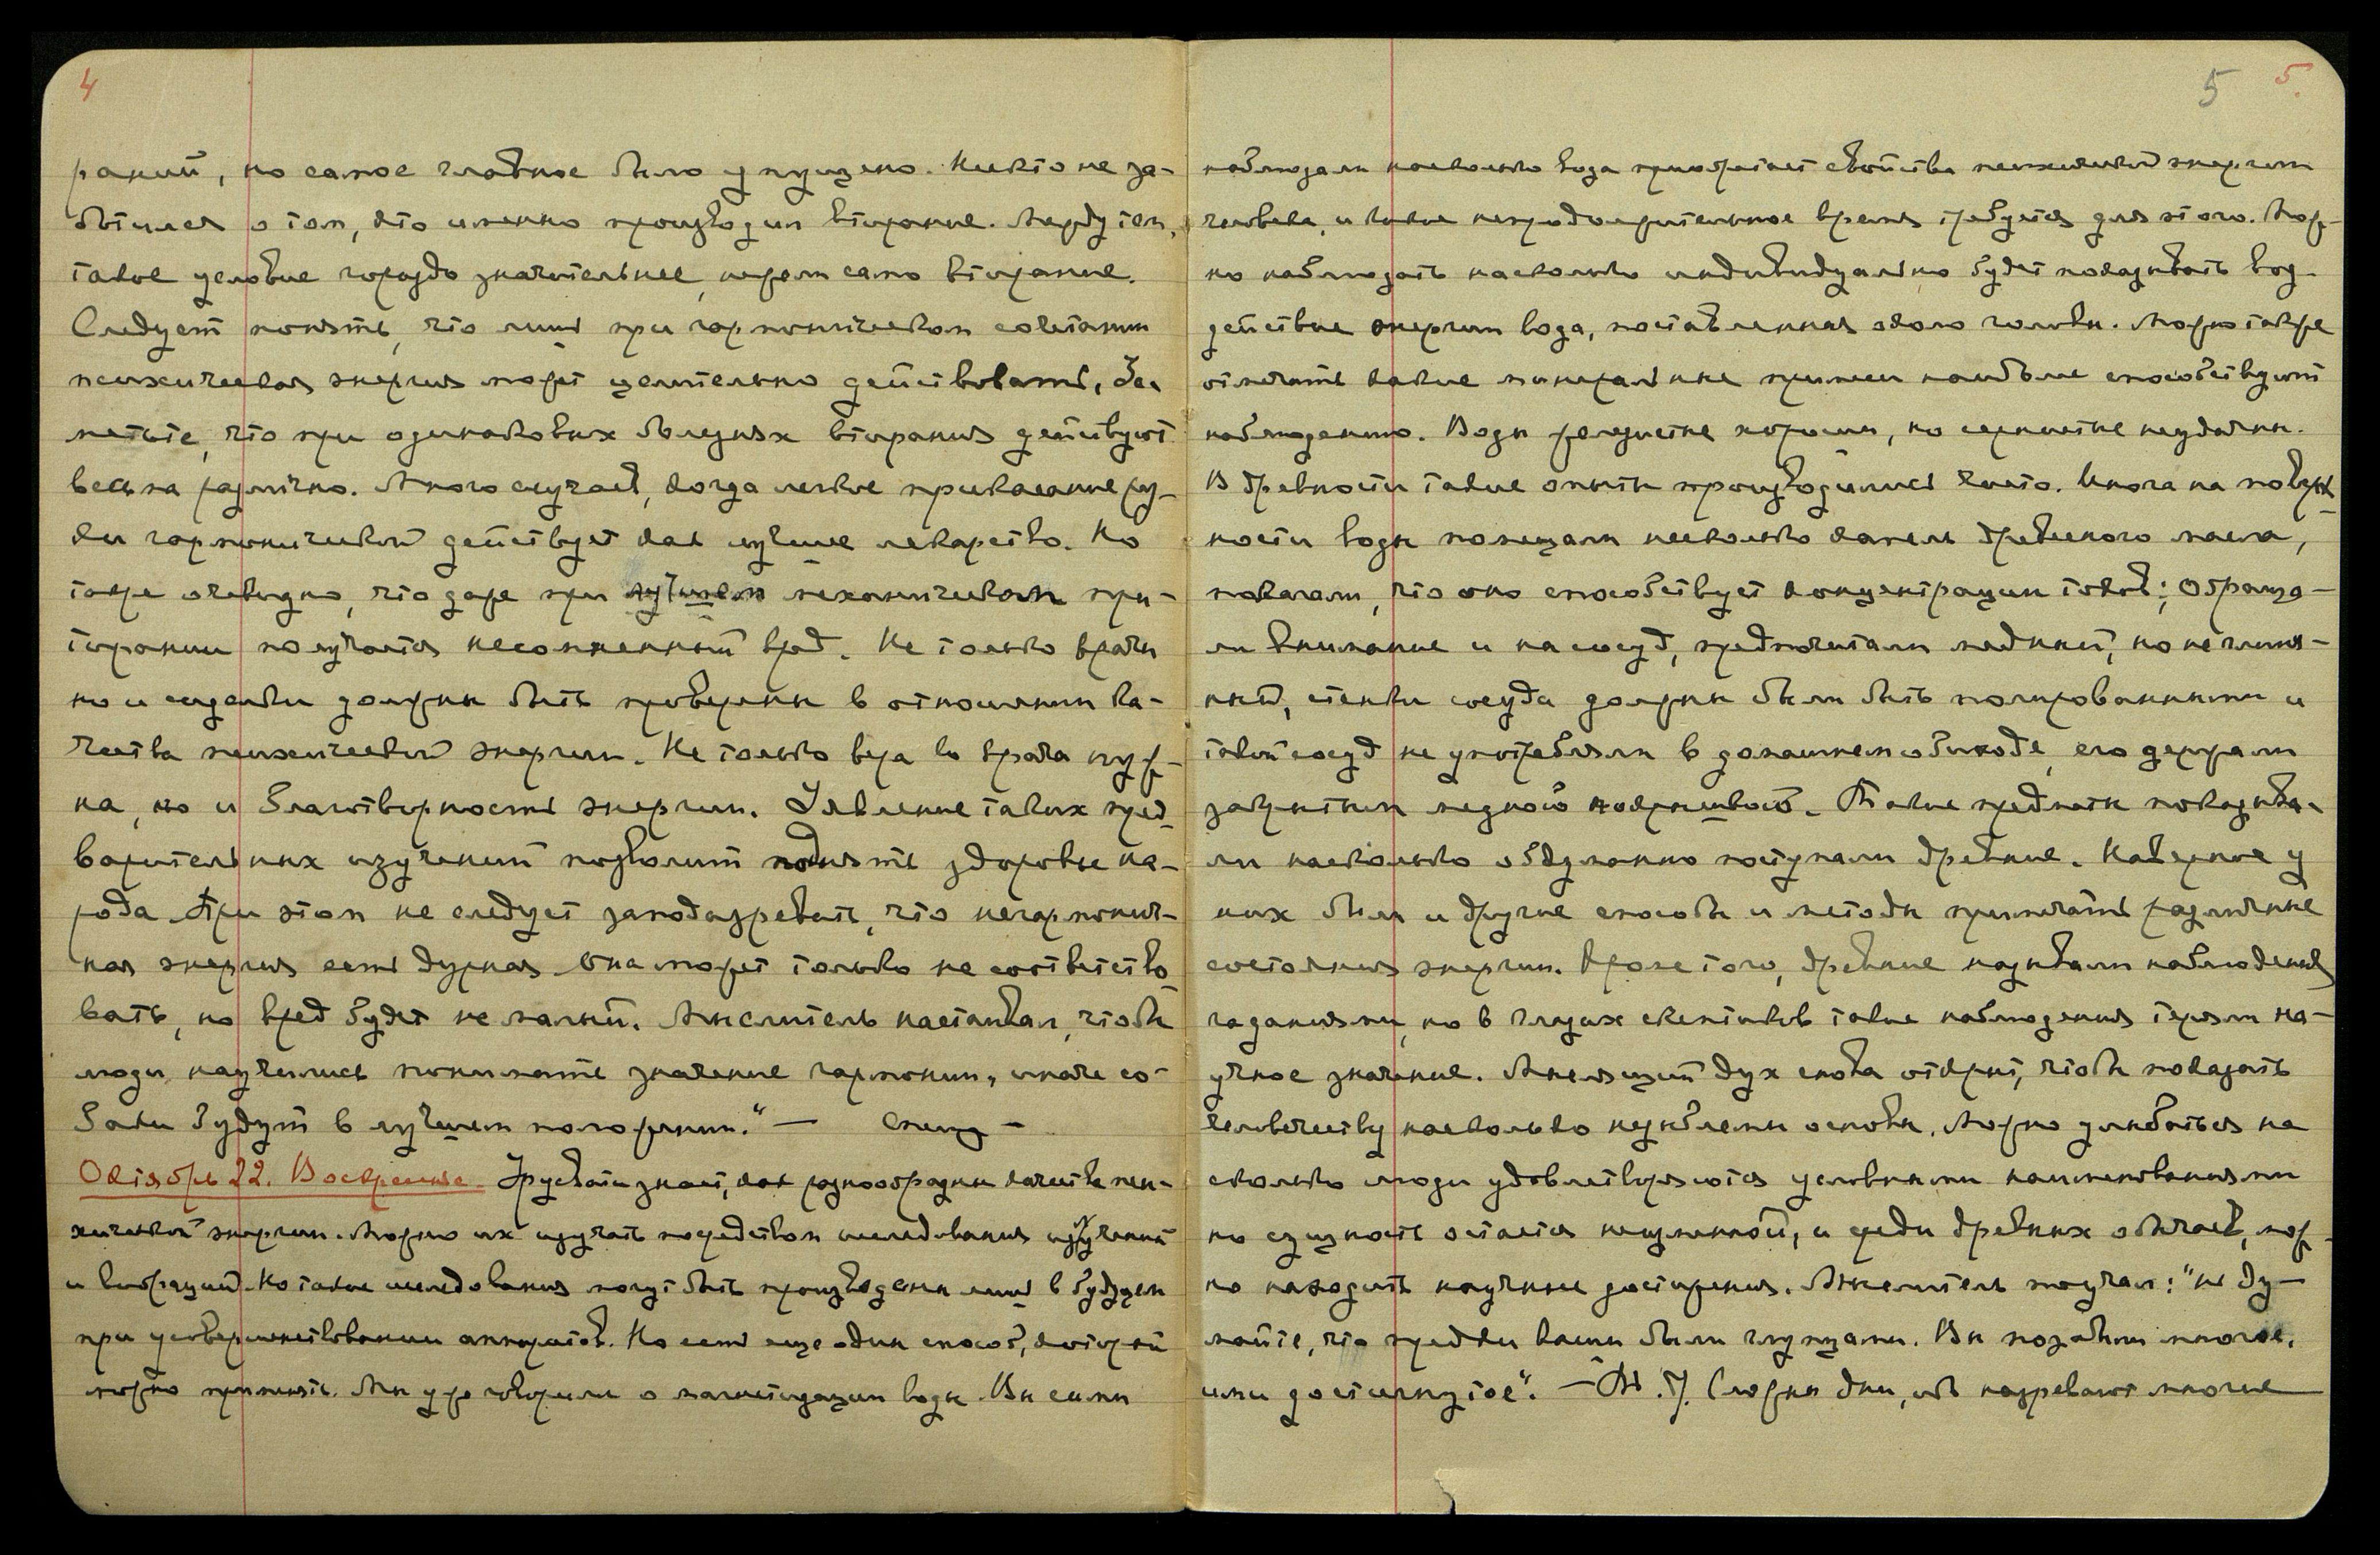 4
раний, но самое главное было упущено. Никто не за-
ботился о том, кто именно производил втирание. Между тем,
такое условие гораздо значительнее, нежели само втирание.
Следует понять, что лишь при гармоническом сочетании
психическая энергия может целительно действовать. За-
метьте, что при одинаковых болезнях втирания действуют
весьма различно. Много случаев, когда легкое прикасание ру-
ки гармонической действует как лучшее лекарство. Но
также очевидно, что даже при лучшем механическом при-
тирании получается несомненный вред. Не только врачи
но и сиделки должны быть проверены в отношении ка-
чества психической энергии. Не только вера во врача нуж-
на, но и благотворность энергии. Улвление таких пред-
варительных изучений позволит поднять здоровье на-
рода. При этом не следует заподазревать, что негармонич-
ная энергия есть дурная. Она может только не соответство-
вать, но вред будет не малый. Мыслитель настаивал, чтобы
люди научились понимать значение гармонии, иначе со-
баки будут в лучшем положении." —
Октябрь 22. Воскресенье. Урусвати знает, как разнообразны качества пси-
хической энергии. Можно их изучать посредством исследования излучений
и вибраций. Но такие исследования могут быть произведены лишь в будущем
при усовершенствовании аппаратов. Но есть еще один способ, который
можно применять. Мы уже говорили о магнетизации воды. Вы сами
5 5.
наблюдали насколько вода приобретает свойства психической энергии
человека, и какое непродолжительное время требуется для этого. Мож-
но наблюдать насколько индивидуально будет показывать воз-
действие энергии вода, поставленная около головы. Можно также
отмечать какие минеральные примеси наиболее способствуют
наблюдению. Воды железистые хороши, но сернистые неудачны.
В древности такие опыты производились часто. Иногда на поверх-
ность воды помещали несколько капель древесного масла,
полагали, что оно способствует концентрации токов; обраща-
ли внимание и на сосуд, предпочитали медный, но не глиня-
ный, стенки сосуда должны были быть полированными и
такой сосуд не употребляли в домашнем обиходе, его держали
закрытым медною покрышкою. Такие предметы показыва-
ли насколько обдуманно поступали древние. Наверное у
них были и другие способы и методы примечать различные
состояния энергии. Кроме того, древние называли наблюдения
гаданиями, но в глазах скептиков такие наблюдения теряли на-
учное значение. Мыслящий дух снова откроет, чтобы показать
человечеству насколько незыблемы основы. Можно улыбаться на
сколько люди удовлетворяются условными наименованиями
но сущность остается неизменной, и среди древних обычаев, мож-
но находить научные достижения. Мыслитель поучал: "не ду-
майте, что предки ваши были глупцами. Вы позабыли многое,
ими достигнутое". — Сложны дни, ибо назревают многие